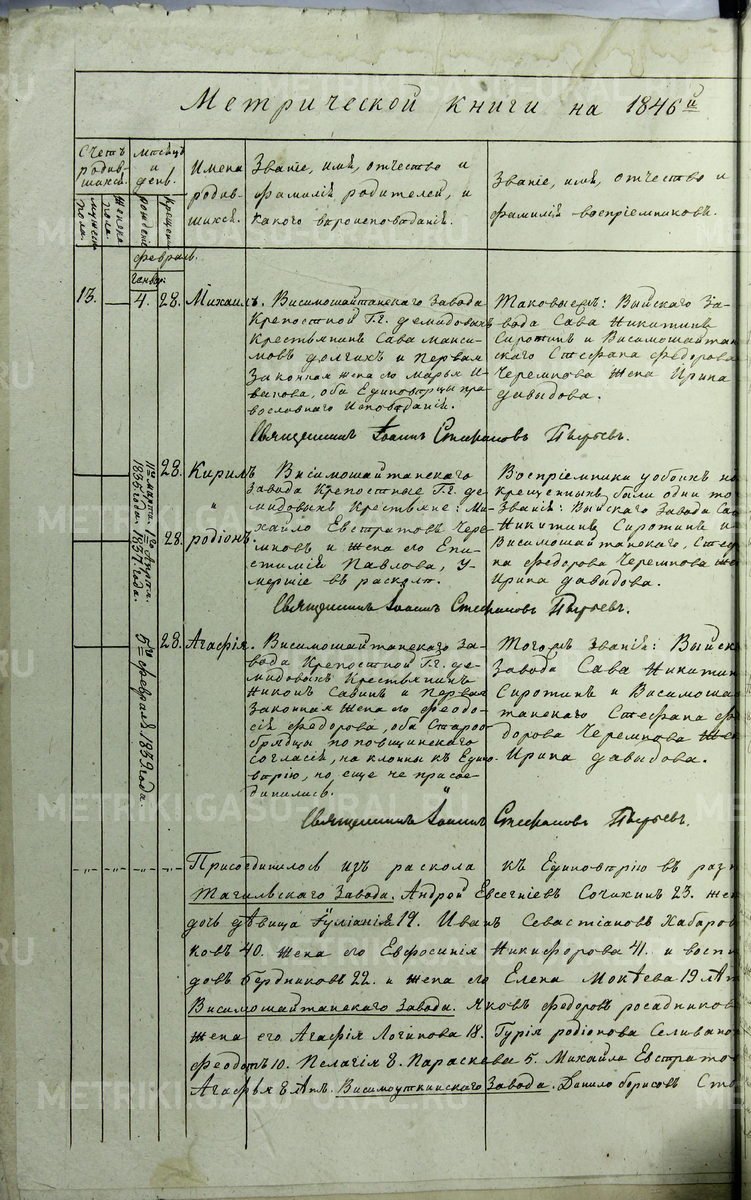 Метрической книги на 1846й
Счетъ родив-шихся.
мужеск. пола.
женска пола.
мѣсяцъ и день.
рожденія
крещенія
Имена родив-шихся.
Званіе, имя, отчество и
фамилія родителей, и
какого вѣроисповѣданія.
Званіе, имя, отчество и
фамилія воспріемниковъ.
февраль.
генвар.
13. 4. 28. Михаилъ.
Висимошайтанскаго завода
Крепостной Г.г. демидовыхъ
Крестьянинъ Сава Макси-
мовъ долгихъ и Первая
Законная жена его Марья И-
ванова, оба Единовѣрцы пра-
вославнаго Исповѣданія.
Таковыежъ: Выйскаго за-
вода Сава Никитинъ
Сиротинъ и Висимошайтан
скаго Стефана федорова
Черемнова жена Ирина
давыдова.
Священникъ Іоаннъ Стефановъ Пырьевъ.
11го марта 1835 года.
1го Апрѣл. 1837. года.
28. Кирилъ
"
28. родіонъ.
Висимошайтанскаго
Завода Крепостные Г.г. де-
мидовыхъ Крестьяне: Ми-
хайло Евстратовъ Чере-
мновъ и жена его Епи-
стимія Павлова, У-
мершіе въ расколѣ.
Воспріемники у обоихъ но
крещенныхъ были одни то
Званія: Выйскаго Завода Сав
Никитинъ Сиротинъ и
Висимошайтанскаго, Стеф
на федорова Черемнова же
Ирина давыдова.
Священникъ Іоаннъ Стефановъ Пырьевъ.
5го февраля 1839 года.
28. Агафія.
Висимошайтанскаго за-
вода Крепостной Г.г. де-
мидовыхъ Крестьянинъ
Никонъ Савинъ и Первая
законная жена его Феодо-
сія федорова, оба Старо-
обрядцы поповщинскаго
согласія, на клонны къ Едино-
вѣрію, но, еще не присое-
динились.
Тогожъ званія: Выйск
Завода Сава Никитин
Сиротинъ и Висимошай
танскаго Стефана фе
дорова Черемнова же
Ирина давыдова.
Священникъ Іоаннъ Стефановъ Пырьевъ.
Присоединилось изъ раскола къ Единовѣрію въ разн
Тагильскаго Завода. Андрей Евсегніевъ Сочихинъ 23. же
дочь дѣвица Іуліанія 19. Иванъ Севастіановъ Хабаро
ковъ 40. жена его Евфросинія Никифорова 41. и восп
довъ Бурдниковъ 22. и жена его Елена Мокѣева 19 лѣт
Висимошайтанскаго Завода. Яковъ федоровъ росадников
жена его Агафія Логинова 18. Гурія родіонова Селивано
Феодотъ 10. Пелагія 8. Параскева 5. Михайла Евстрато
Агафья 8 лѣт. Висимоуткинскаго Завода. Данило борисовъ Сто
METRIKI.GASO-URAL.RU